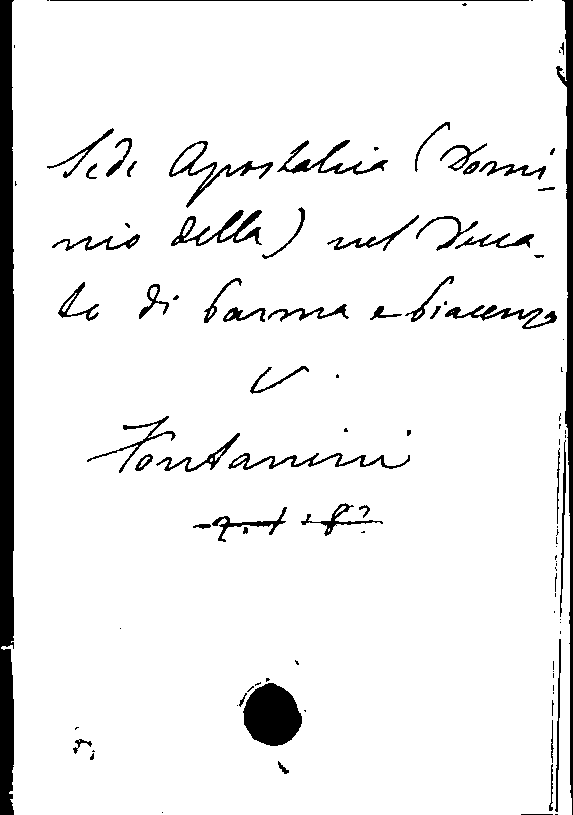 Sede Apostolica (Domi-
nio della) nel Duca-
to di Parma e Piacenza
V.
Fontanini